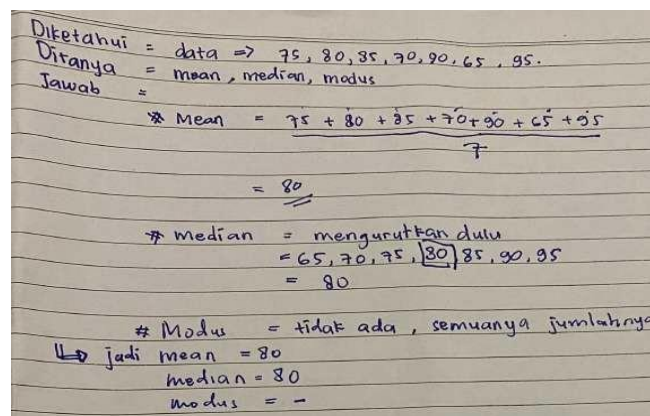 Diketahui = data => 75, 80, 85, 70, 90, 65, 95.
Ditanya = mean, median, modus
Jawab =
* Mean = 75 + 80 + 85 + 70 + 90 + 65 + 95
7
= 80
* median = mengurutkan dulu
= 65, 70, 75, 80, 85, 90, 95
= 80
# Modus = tidak ada, semuanya jumlahnya
↳ jadi mean = 80
median = 80
modus = -